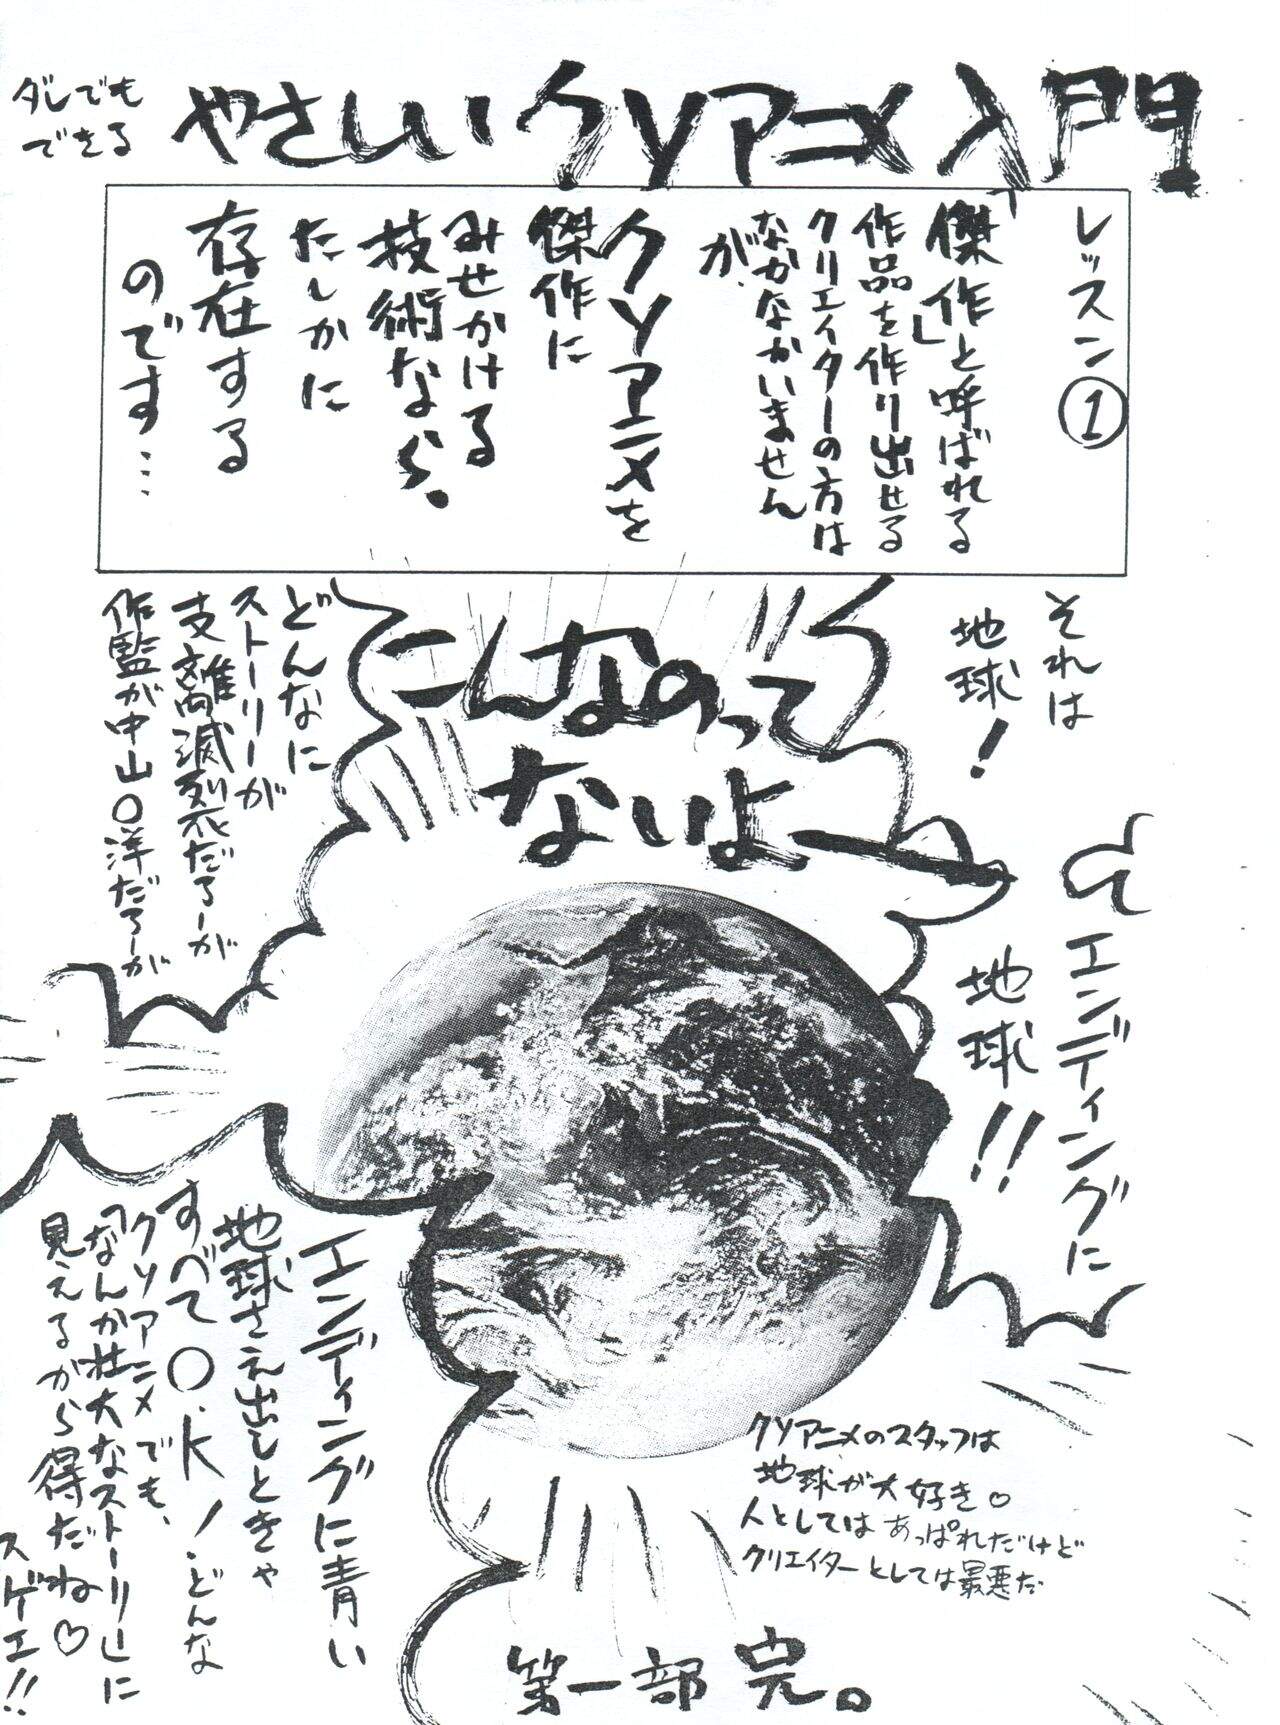 ダレでも
できる
やさしいクソアニメ入門
レッスン①
「傑作」と呼ばれる
作品を作り出せる
クリエイターの方は
なかなかいません
が、
クソアニメを
傑作に
みせかける
技術なら、
たしかに
存在する
のです…
それは
地球!
エンディングに
地球!!
こんなのって
ないよ
どんなに
ストーリーが
支離滅裂だろーが
作監が中山〇洋だろーが
エンディングに青い
地球さえ出しときゃ
すべてO.K!どんな
クソアニメでも、
「なんか壮大なストーリー」に
見えるから得だね♡
スゲエ!!
クソアニメのスタッフは
地球が大好き♡
人としてはあっぱれだけど
クリエイターとしては最悪だ
第一部 完。